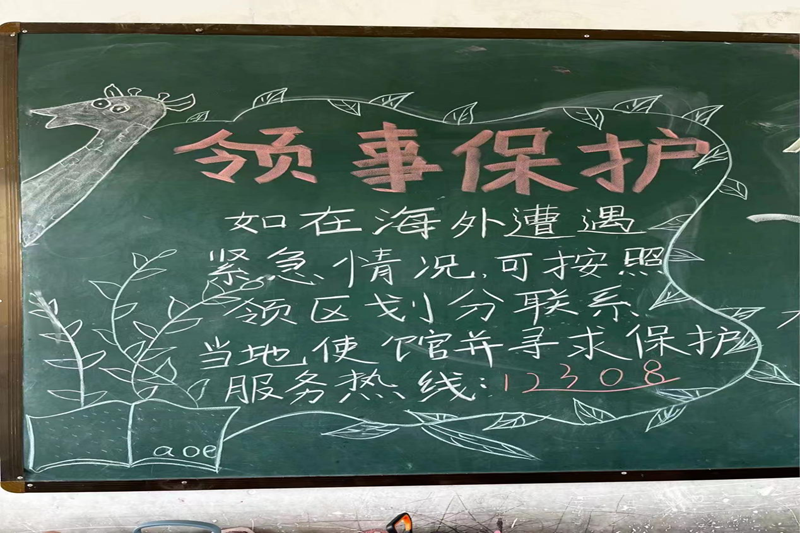 领事保护
如在海外遭遇
紧急情况,可按照
领区划分联系
当地使馆并寻求保护
服务热线:12308
aoe